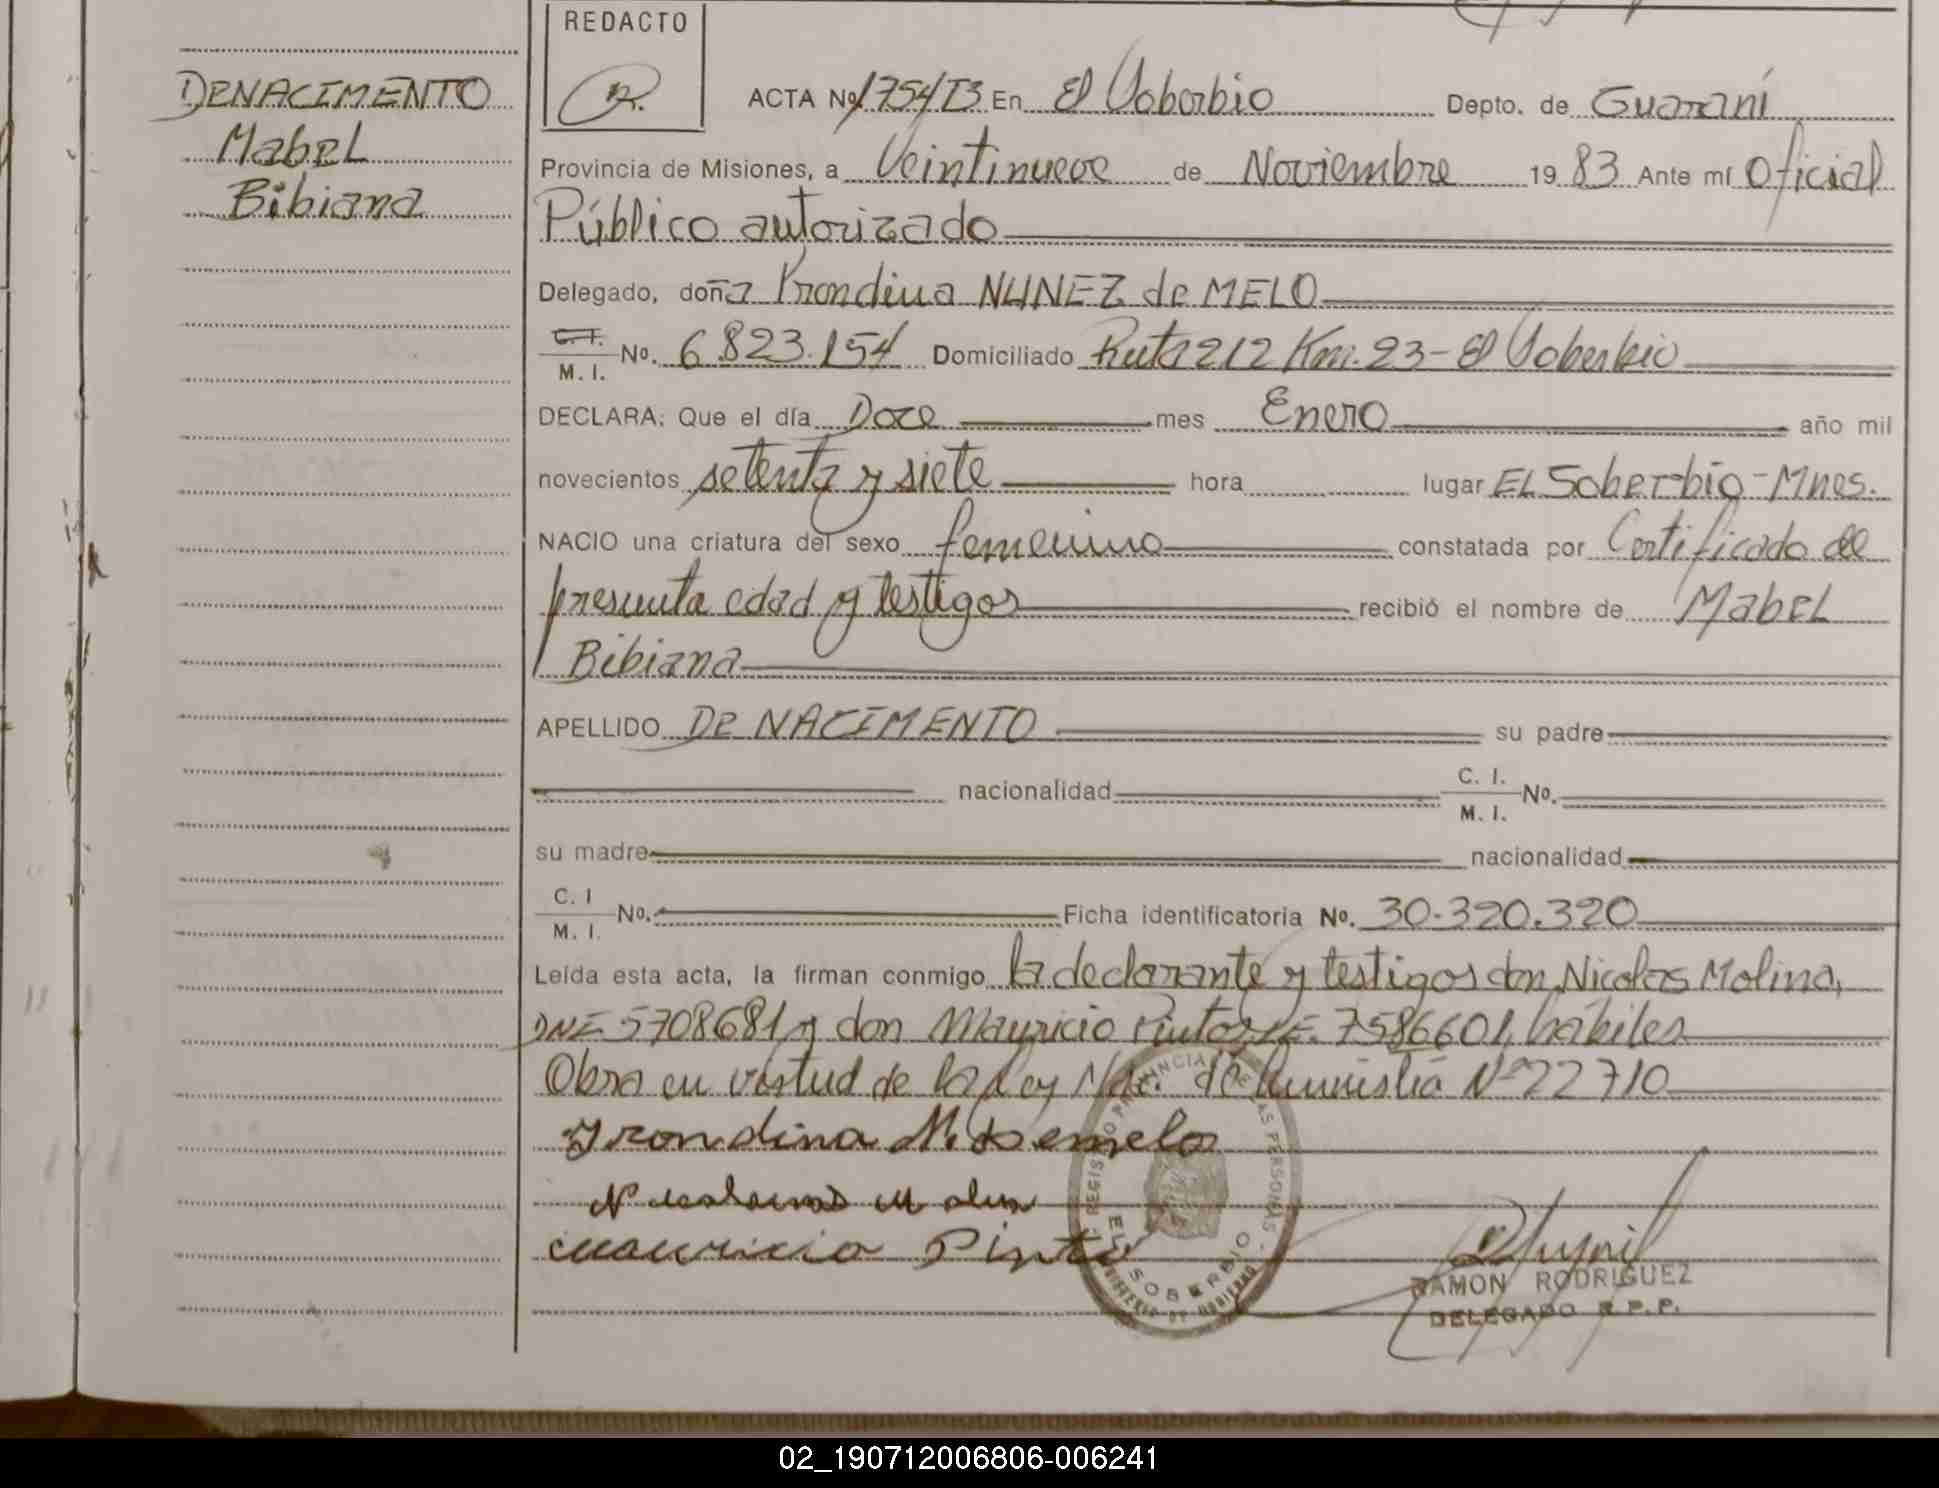 REDACTO
DE NACIMENTO
Mabel
Bibiana
ACTA Nº 1754/T3 En El Soberbio Depto. de Guaraní
Provincia de Misiones, a Veintinueve de Noviembre 1983 Ante mí Oficial
Público autorizado
Delegado, doña Irondina NUNEZ de MELO
C. I. / M. I. No. 6.823.154 Domiciliado Ruta 212 Km. 23 - El Soberbio
DECLARA: Que el día Doce mes Enero año mil
novecientos setenta y siete hora lugar EL Soberbio - Mnes.
NACIO una criatura del sexo femenino constatada por Certificado de
presunta edad y testigos recibió el nombre de Mabel
Bibiana
APELLIDO DE NACIMENTO su padre
nacionalidad C. I. / M. I. No.
su madre nacionalidad
C. I / M. I. No. Ficha identificatoria No. 30.320.320
Leída esta acta, la firman conmigo la declarante y testigos don Nicolas Molina,
DNI 5708681 y don Mauricio Pinto, LE. 7586601, hábiles
Obra en virtud de la Ley Nac. de Amnistia Nº 22710
Irondina N. de melo
mauricio Pinto
REGISTRO PROVINCIAL DE LAS PERSONAS
EL SOBERBIO
MINISTERIO DE GOBIERNO
RAMON RODRIGUEZ
DELEGADO R. P. P.
02_190712006806-006241